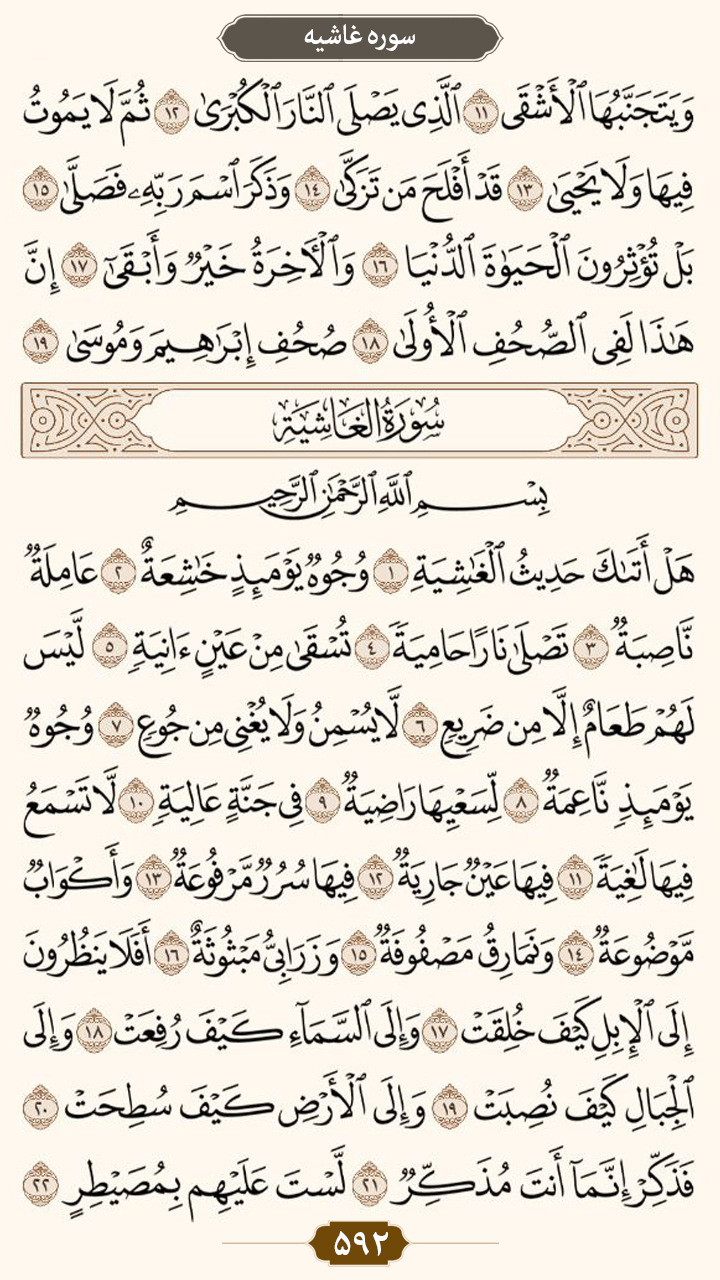 سوره غاشیه
وَيَتَجَنَّبُهَا ٱلْأَشْقَى ١١ ٱلَّذِى يَصْلَى ٱلنَّارَ ٱلْكُبْرَىٰ ١٢ ثُمَّ لَا يَمُوتُ
فِيهَا وَلَا يَحْيَىٰ ١٣ قَدْ أَفْلَحَ مَن تَزَكَّىٰ ١٤ وَذَكَرَ ٱسْمَ رَبِّهِۦ فَصَلَّىٰ ١٥
بَلْ تُؤْثِرُونَ ٱلْحَيَوٰةَ ٱلدُّنْيَا ١٦ وَٱلْءَاخِرَةُ خَيْرٌ وَأَبْقَىٰٓ ١٧ إِنَّ
هَٰذَا لَفِى ٱلصُّحُفِ ٱلْأُولَىٰ ١٨ صُحُفِ إِبْرَٰهِيمَ وَمُوسَىٰ ١٩
سُورَةُ الغَاشِيَةِ
بِسْمِ ٱللَّهِ ٱلرَّحْمَٰنِ ٱلرَّحِيمِ
هَلْ أَتَىٰكَ حَدِيثُ ٱلْغَٰشِيَةِ ١ وُجُوهٌ يَوْمَئِذٍ خَٰشِعَةٌ ٢ عَامِلَةٌ
نَّاصِبَةٌ ٣ تَصْلَىٰ نَارًا حَامِيَةً ٤ تُسْقَىٰ مِنْ عَيْنٍ ءَانِيَةٍ ٥ لَّيْسَ
لَهُمْ طَعَامٌ إِلَّا مِن ضَرِيعٍ ٦ لَّا يُسْمِنُ وَلَا يُغْنِى مِن جُوعٍ ٧ وُجُوهٌ
يَوْمَئِذٍ نَّاعِمَةٌ ٨ لِّسَعْيِهَا رَاضِيَةٌ ٩ فِى جَنَّةٍ عَالِيَةٍ ١٠ لَّا تَسْمَعُ
فِيهَا لَٰغِيَةً ١١ فِيهَا عَيْنٌ جَارِيَةٌ ١٢ فِيهَا سُرُرٌ مَّرْفُوعَةٌ ١٣ وَأَكْوَابٌ
مَّوْضُوعَةٌ ١٤ وَنَمَارِقُ مَصْفُوفَةٌ ١٥ وَزَرَابِىُّ مَبْثُوثَةٌ ١٦ أَفَلَا يَنظُرُونَ
إِلَى ٱلْإِبِلِ كَيْفَ خُلِقَتْ ١٧ وَإِلَى ٱلسَّمَآءِ كَيْفَ رُفِعَتْ ١٨ وَإِلَى
ٱلْجِبَالِ كَيْفَ نُصِبَتْ ١٩ وَإِلَى ٱلْأَرْضِ كَيْفَ سُطِحَتْ ٢٠
فَذَكِّرْ إِنَّمَآ أَنتَ مُذَكِّرٌ ٢١ لَّسْتَ عَلَيْهِم بِمُصَيْطِرٍ ٢٢
۵۹۲